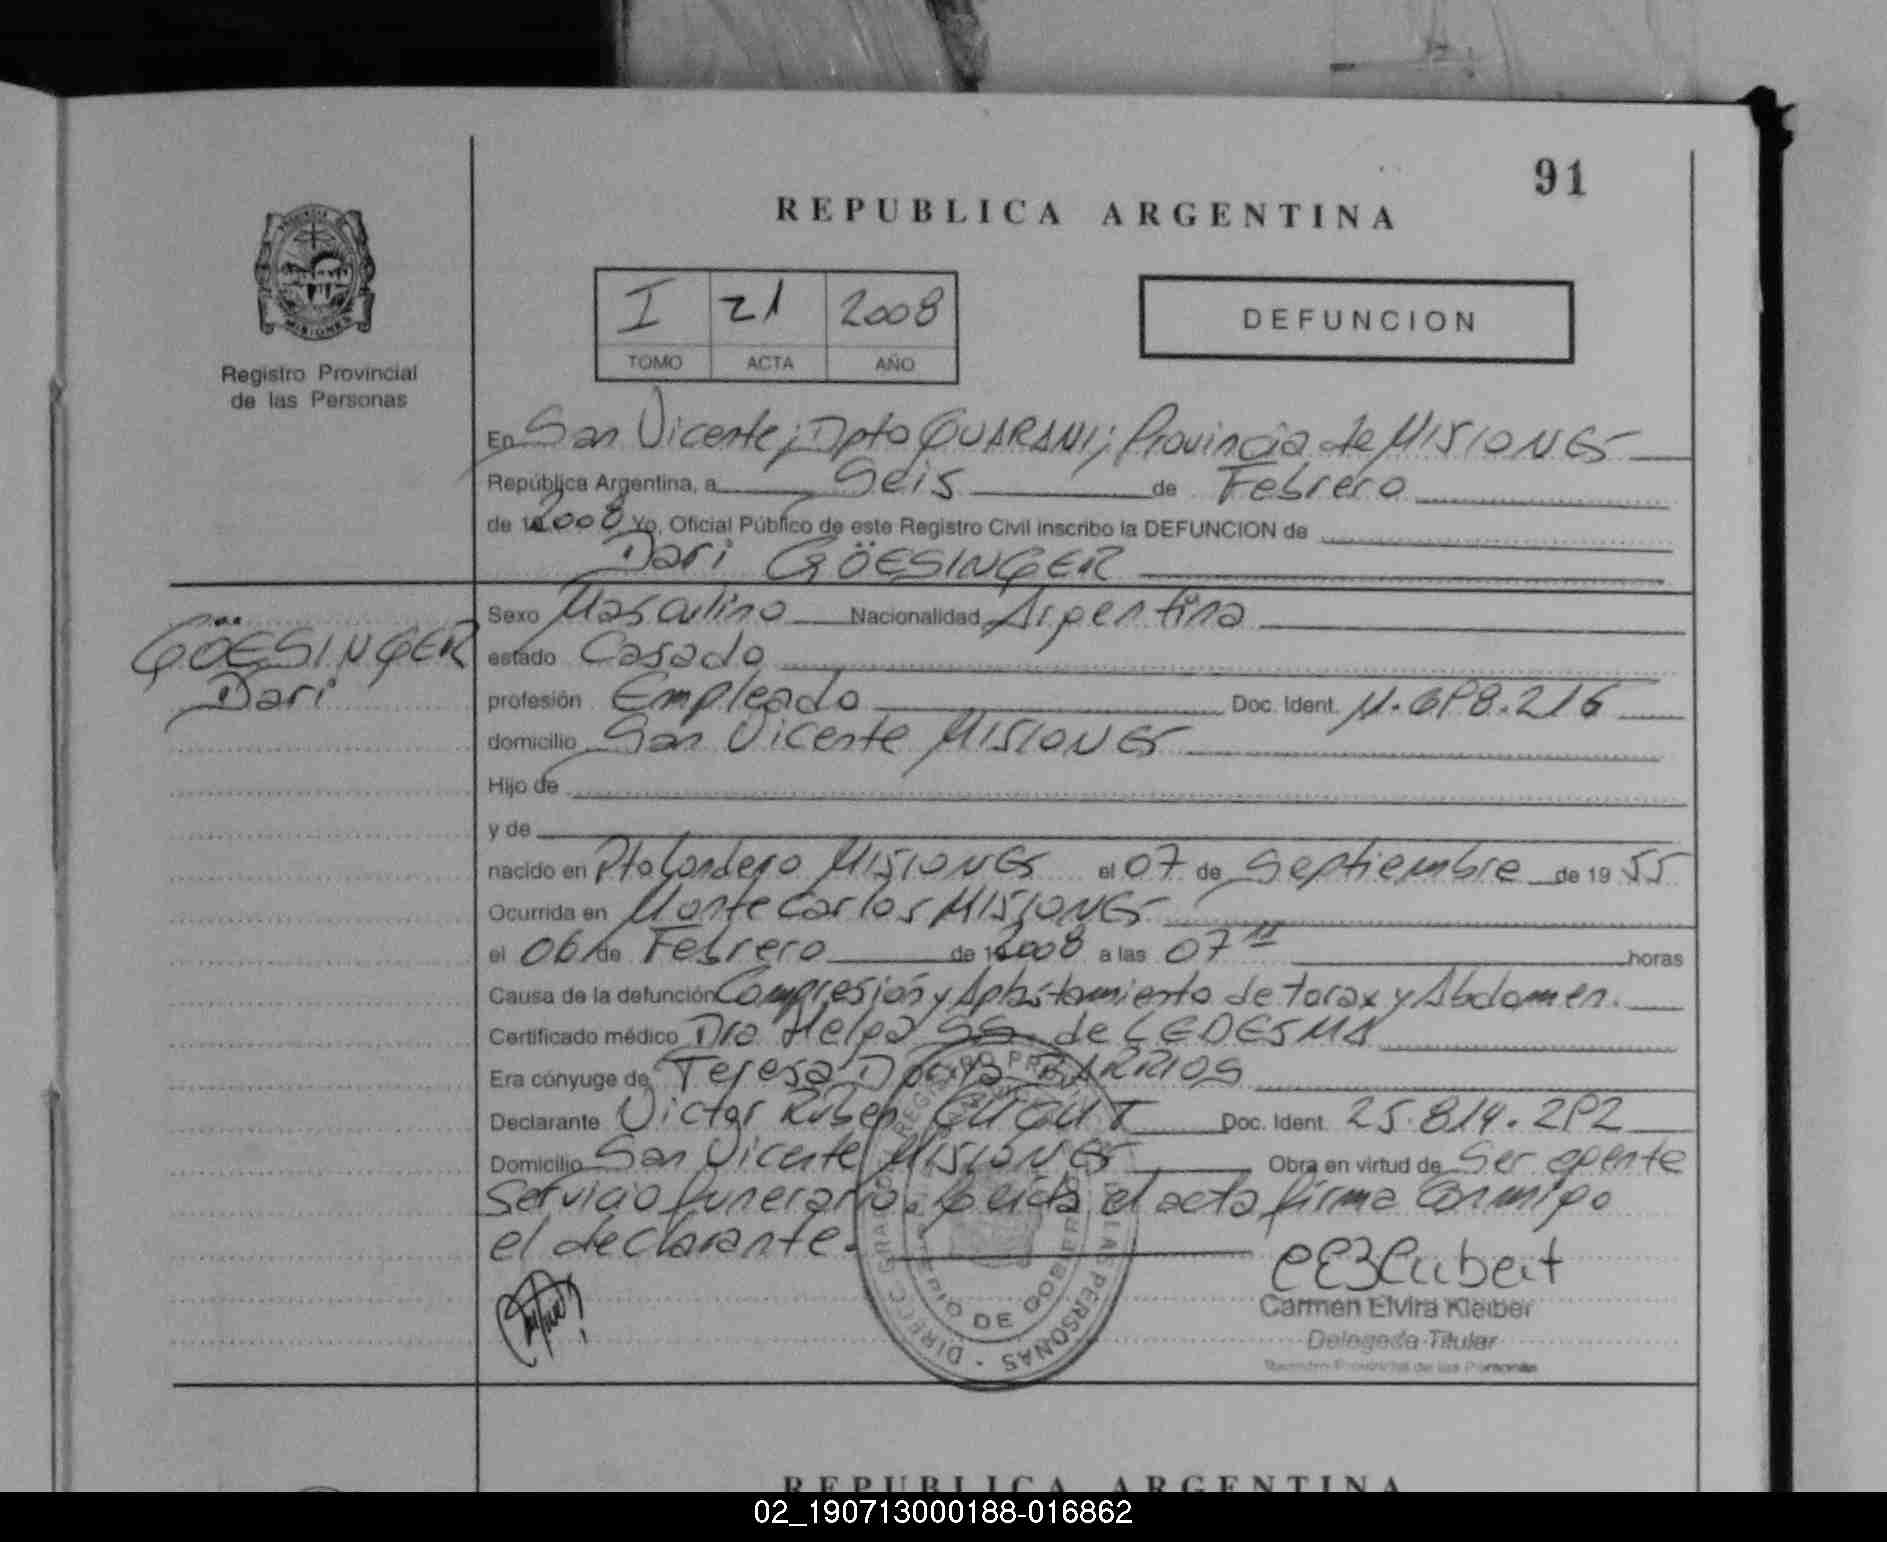 91
REPUBLICA ARGENTINA
MISIONES
Registro Provincial
de las Personas
I 21 2008
TOMO ACTA AÑO
DEFUNCION
En San Vicente; Dpto GUARANI; Provincia de MISIONES
República Argentina, a Seis de Febrero
de 2008 Yo, Oficial Público de este Registro Civil inscribo la DEFUNCION de
Dari GÖESINGER
GÖESINGER
Dari
Sexo Masculino Nacionalidad Argentina
estado Casado
profesión Empleado Doc. Ident.
domicilio San Vicente MISIONES
Hijo de
y de
nacido en Pto MISIONES el 07 de Septiembre de 19 55
Ocurrida en Montecarlos MISIONES
el 06 de Febrero de 2008 a las 07 horas
Causa de la defunción Compresión y Aplastamiento de torax y Abdomen.
Certificado médico Dra Helga de LEDESMA
Era cónyuge de Teresa BARRIOS
Declarante Victor Ruben Doc. Ident. 25.814.292
Domicilio San Vicente MISIONES Obra en virtud de Ser gente
Servicio funerario. el acta firma Conmigo
el declarante.
Carmen Elvira Kleiber
Delegada Titular
Registro Provincial de las Personas
REPUBLICA ARGENTINA
02_190713000188-016862